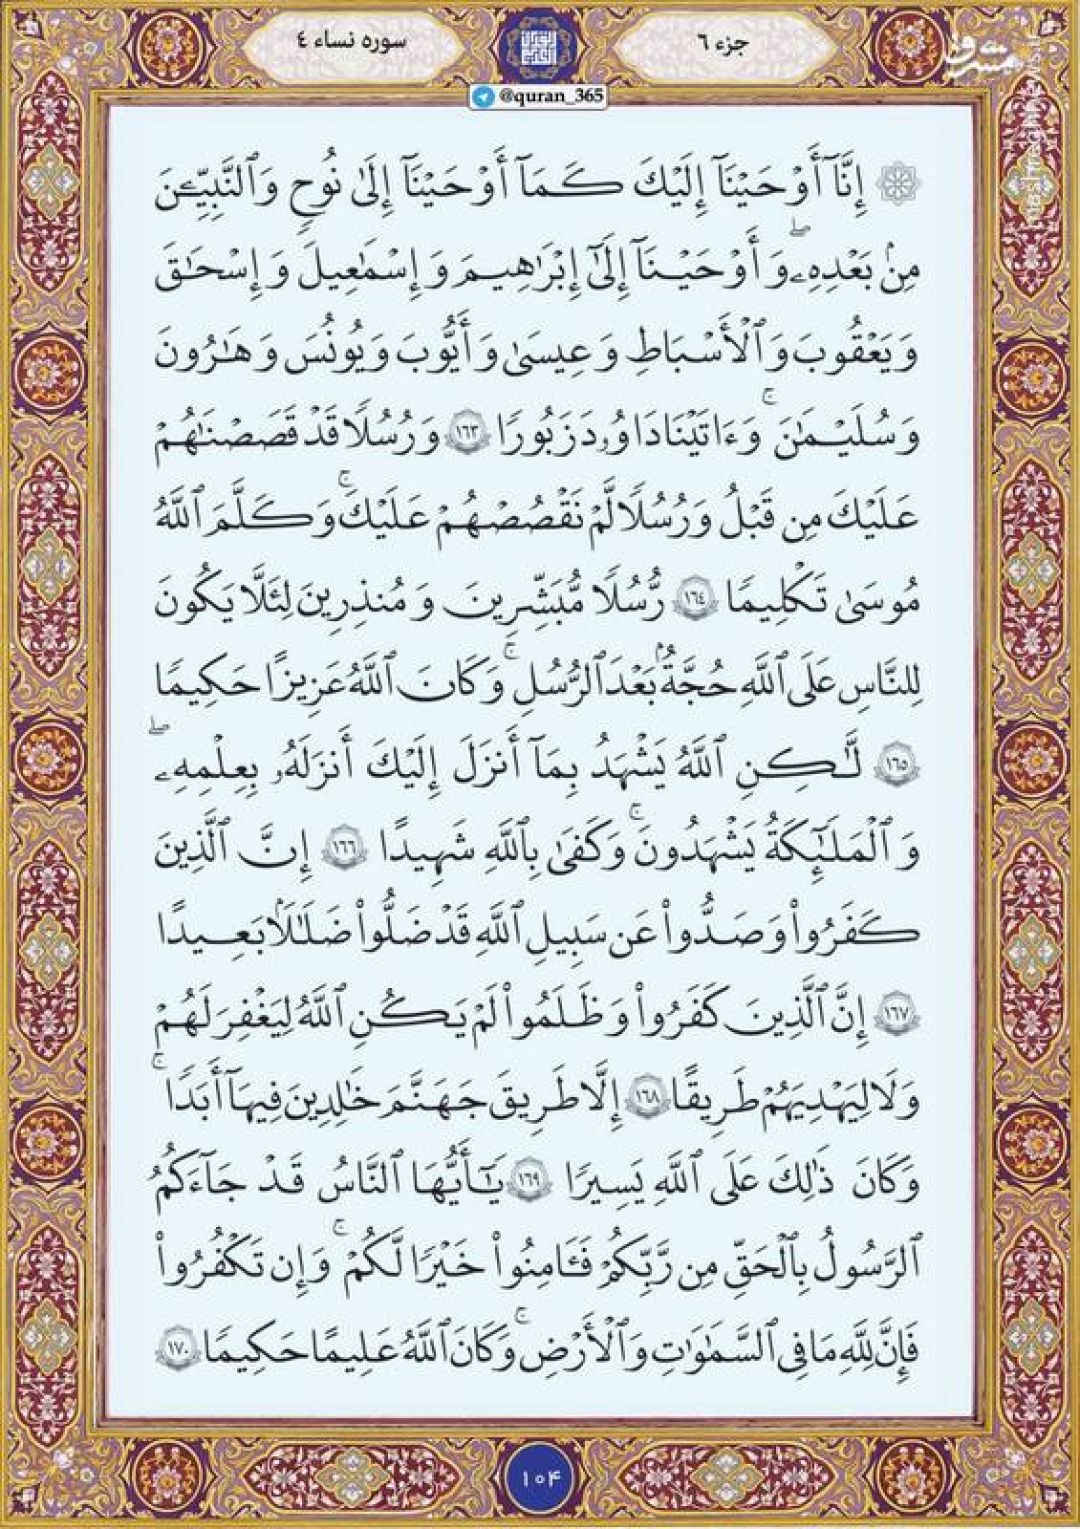 جزء ٦
سوره نساء ٤
مشرق
mashreghnews.ir
@quran_365
۞ إِنَّآ أَوْحَيْنَآ إِلَيْكَ كَمَآ أَوْحَيْنَآ إِلَىٰ نُوحٍ وَٱلنَّبِيِّـۧنَ
مِنۢ بَعْدِهِۦ ۖ وَأَوْحَيْنَآ إِلَىٰٓ إِبْرَٰهِيمَ وَإِسْمَٰعِيلَ وَإِسْحَٰقَ
وَيَعْقُوبَ وَٱلْأَسْبَاطِ وَعِيسَىٰ وَأَيُّوبَ وَيُونُسَ وَهَٰرُونَ
وَسُلَيْمَٰنَ ۚ وَءَاتَيْنَا دَاوُۥدَ زَبُورًا ١٦٣ وَرُسُلًا قَدْ قَصَصْنَٰهُمْ
عَلَيْكَ مِن قَبْلُ وَرُسُلًا لَّمْ نَقْصُصْهُمْ عَلَيْكَ ۚ وَكَلَّمَ ٱللَّهُ
مُوسَىٰ تَكْلِيمًا ١٦٤ رُّسُلًا مُّبَشِّرِينَ وَمُنذِرِينَ لِئَلَّا يَكُونَ
لِلنَّاسِ عَلَى ٱللَّهِ حُجَّةٌۢ بَعْدَ ٱلرُّسُلِ ۚ وَكَانَ ٱللَّهُ عَزِيزًا حَكِيمًا
١٦٥ لَّٰكِنِ ٱللَّهُ يَشْهَدُ بِمَآ أَنزَلَ إِلَيْكَ أَنزَلَهُۥ بِعِلْمِهِۦ ۖ
وَٱلْمَلَٰٓئِكَةُ يَشْهَدُونَ ۚ وَكَفَىٰ بِٱللَّهِ شَهِيدًا ١٦٦ إِنَّ ٱلَّذِينَ
كَفَرُوا۟ وَصَدُّوا۟ عَن سَبِيلِ ٱللَّهِ قَدْ ضَلُّوا۟ ضَلَٰلًۢا بَعِيدًا
١٦٧ إِنَّ ٱلَّذِينَ كَفَرُوا۟ وَظَلَمُوا۟ لَمْ يَكُنِ ٱللَّهُ لِيَغْفِرَ لَهُمْ
وَلَا لِيَهْدِيَهُمْ طَرِيقًا ١٦٨ إِلَّا طَرِيقَ جَهَنَّمَ خَٰلِدِينَ فِيهَآ أَبَدًا ۚ
وَكَانَ ذَٰلِكَ عَلَى ٱللَّهِ يَسِيرًا ١٦٩ يَٰٓأَيُّهَا ٱلنَّاسُ قَدْ جَآءَكُمُ
ٱلرَّسُولُ بِٱلْحَقِّ مِن رَّبِّكُمْ فَـَٔامِنُوا۟ خَيْرًا لَّكُمْ ۚ وَإِن تَكْفُرُوا۟
فَإِنَّ لِلَّهِ مَا فِى ٱلسَّمَٰوَٰتِ وَٱلْأَرْضِ ۚ وَكَانَ ٱللَّهُ عَلِيمًا حَكِيمًا ١٧٠
١٠۴